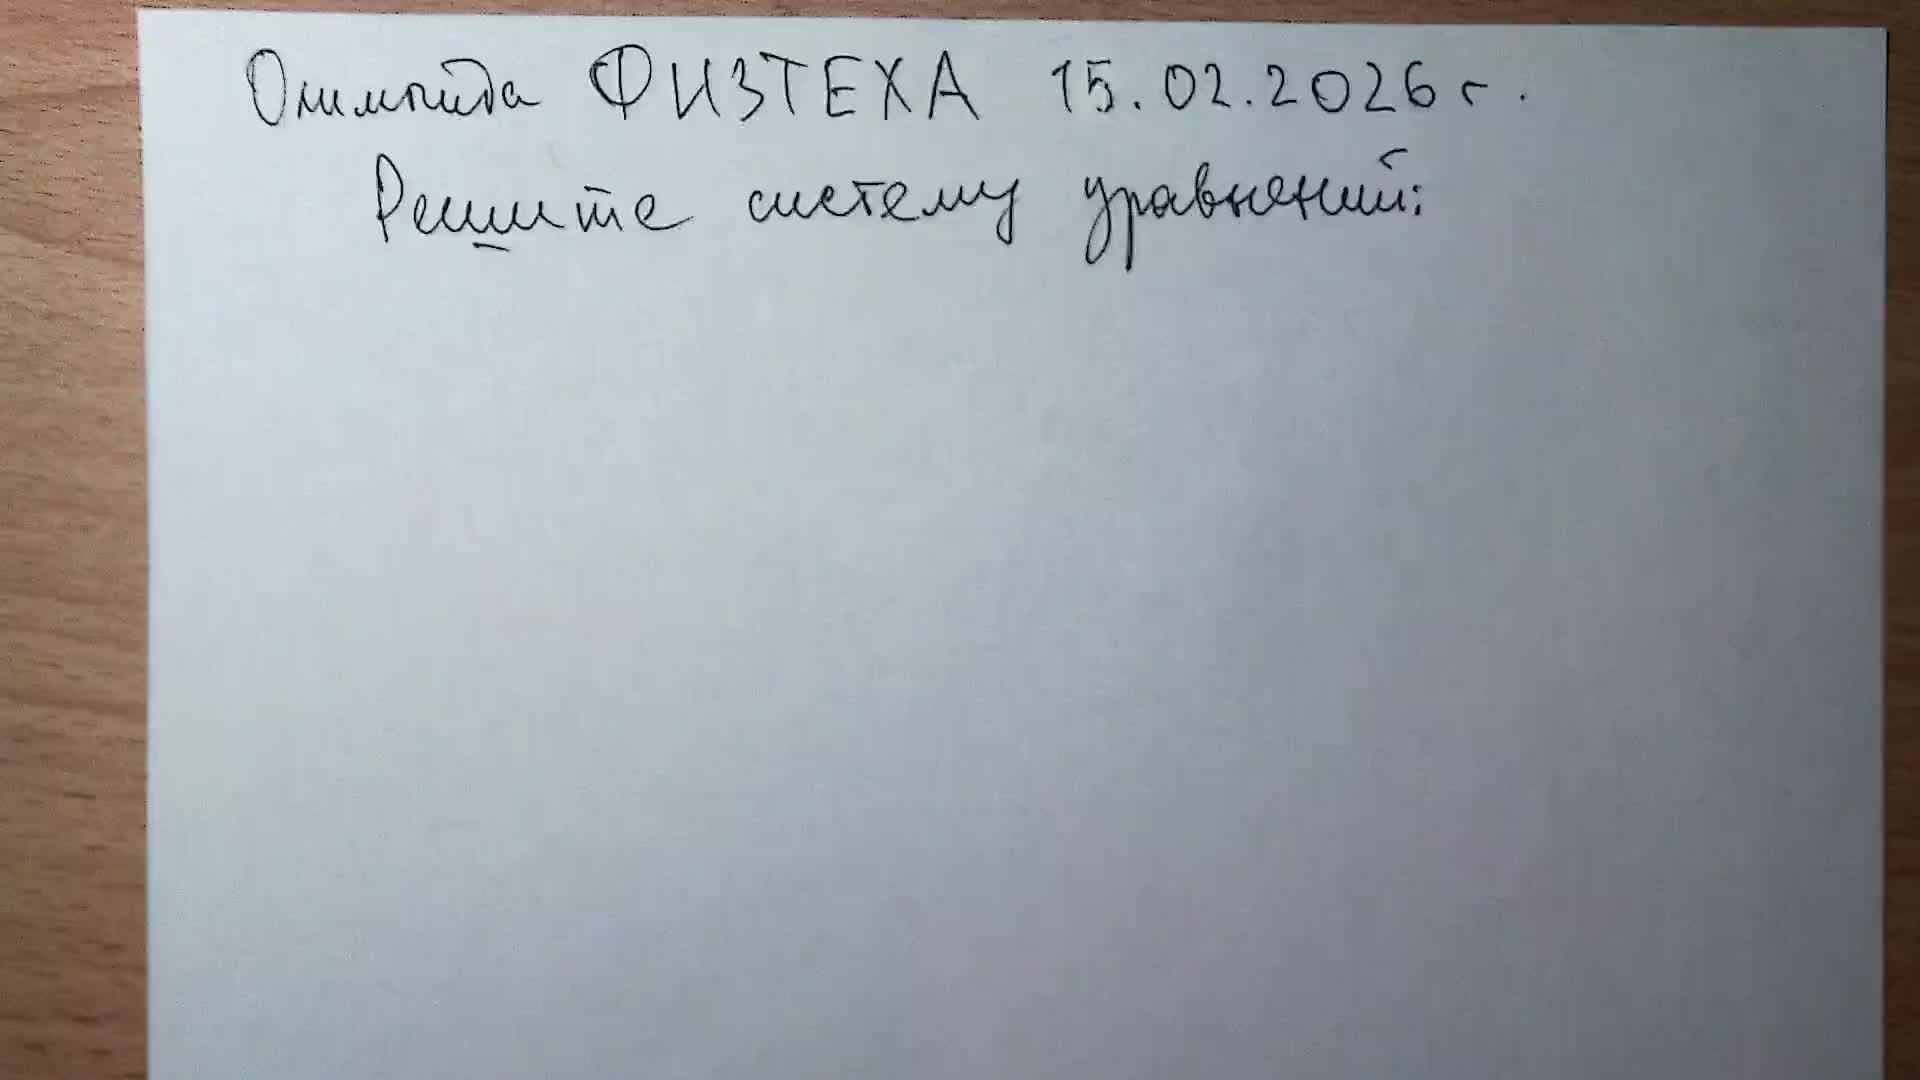 Олимпиада ФИЗТЕХА 15.02.2026 г.
Решите систему уравнений: